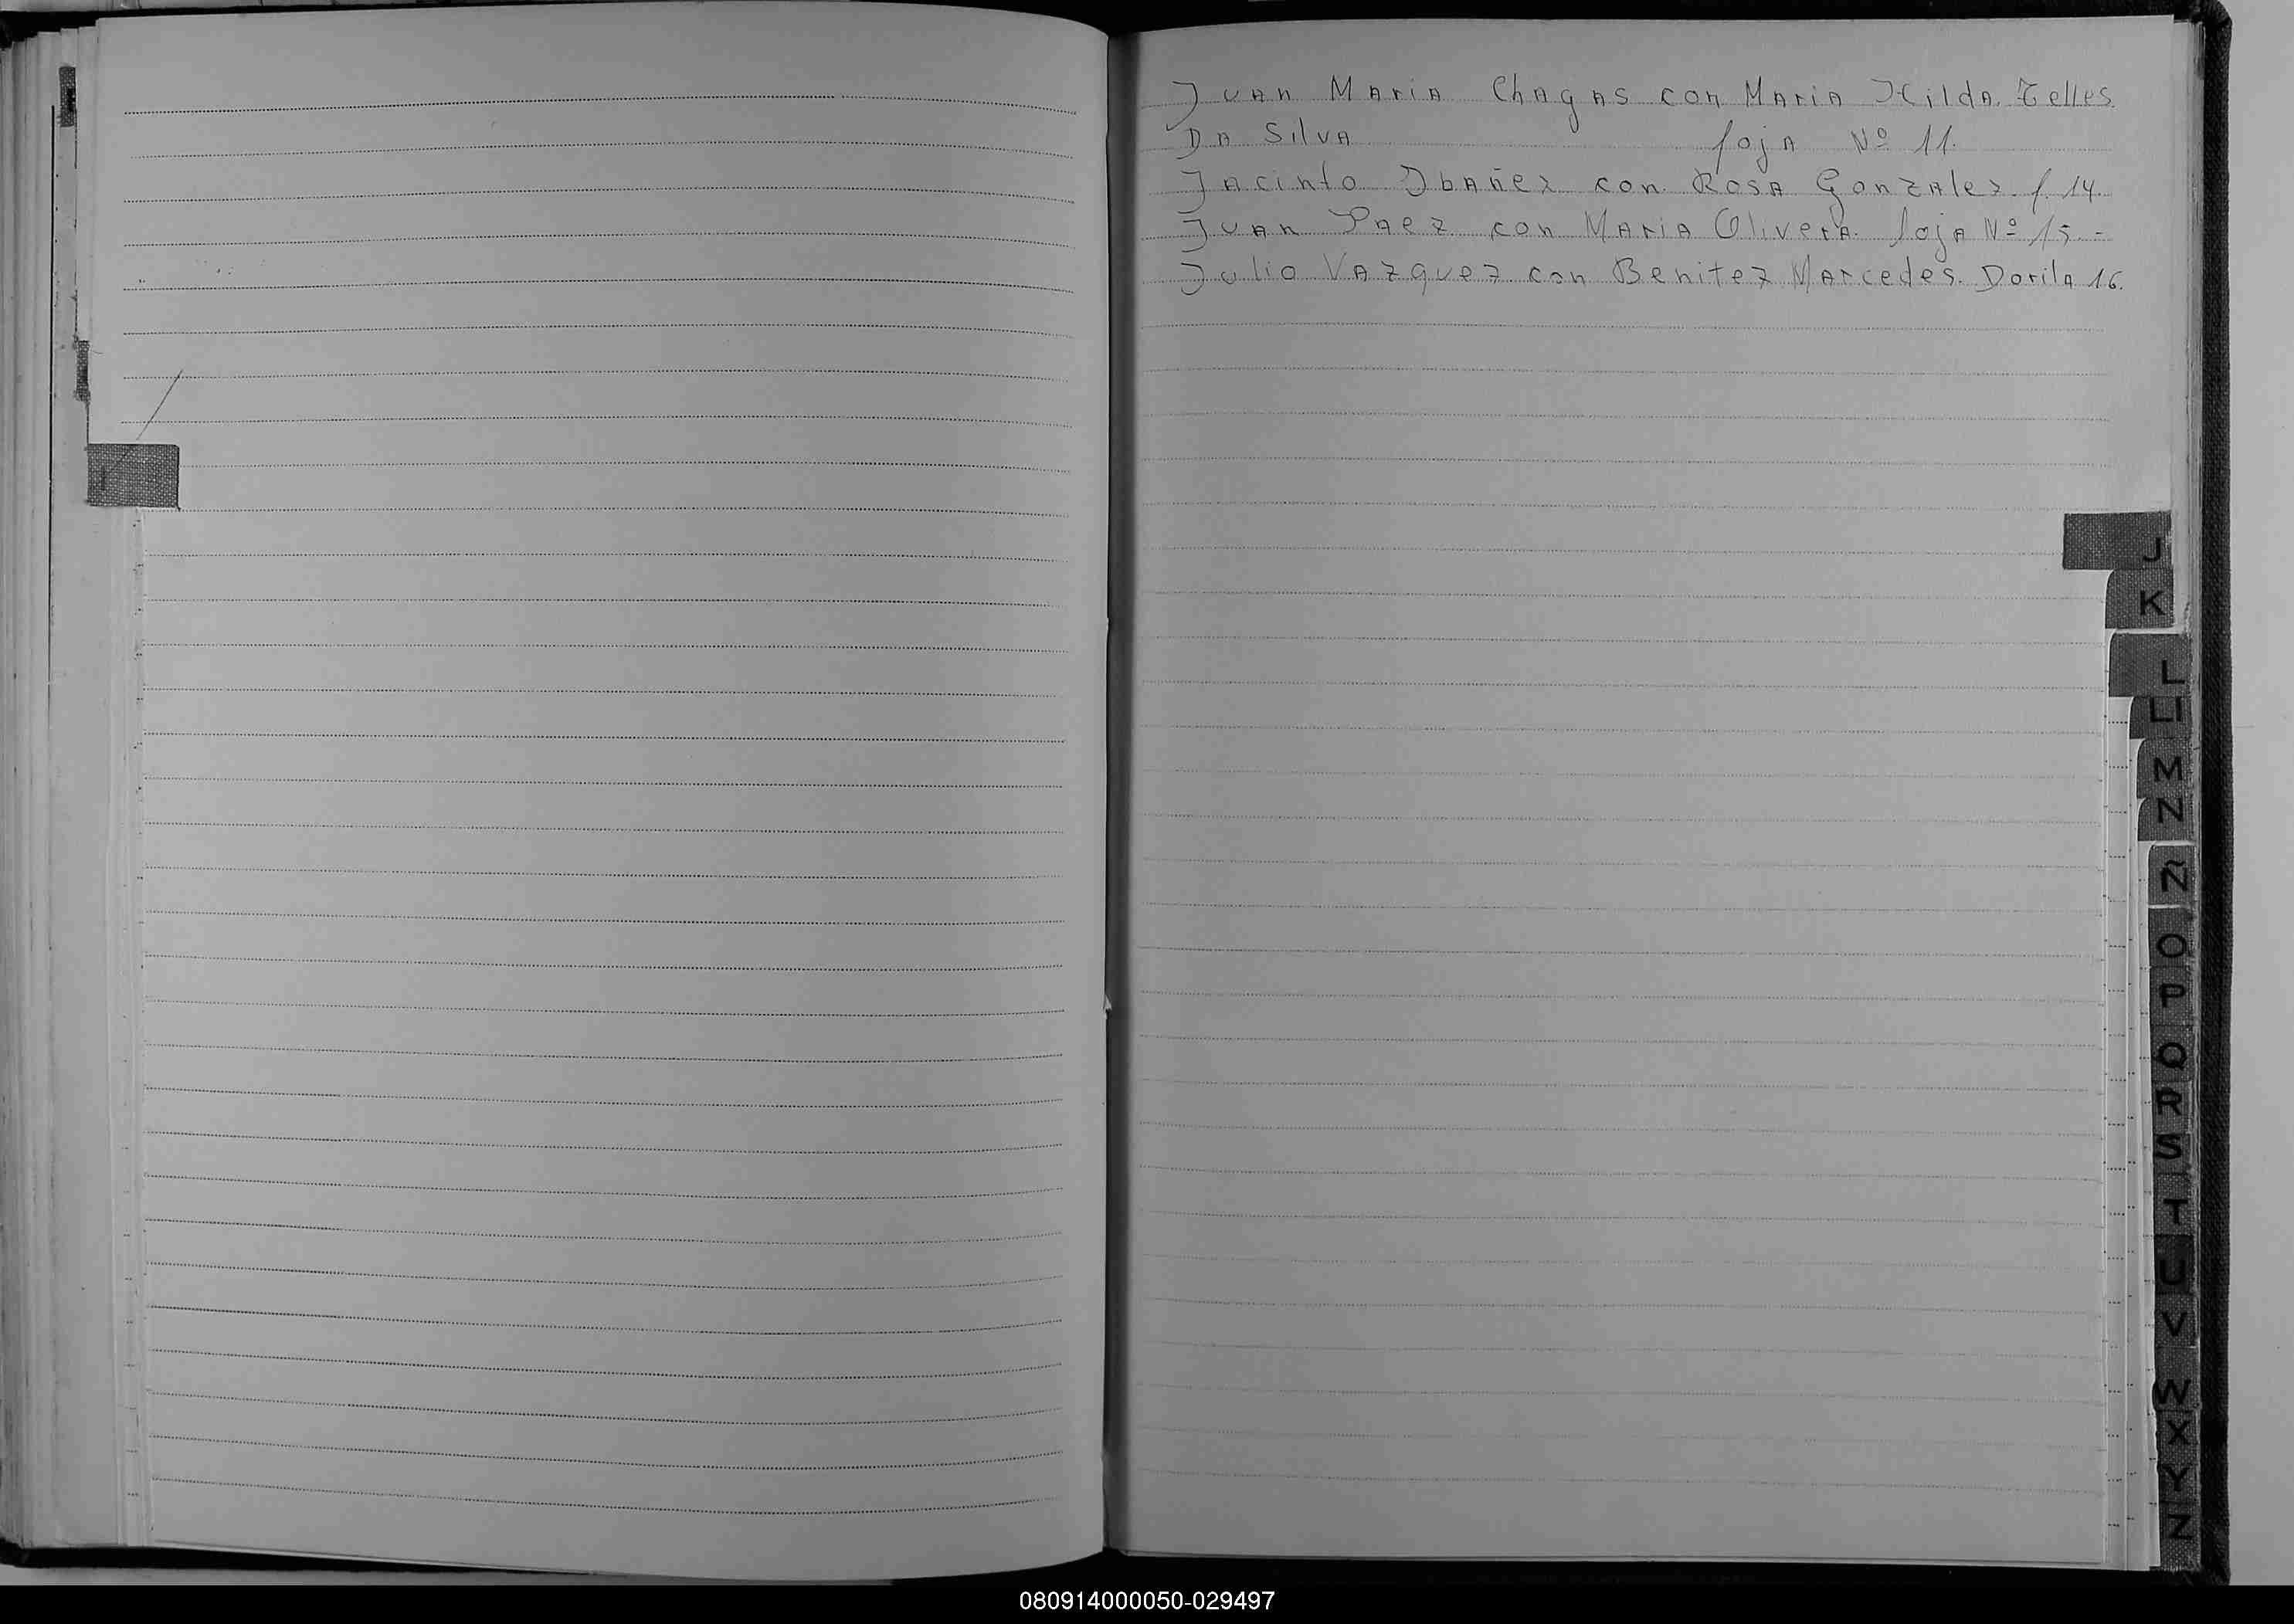 Juan Maria Chagas con Maria Hilda Telles
Da Silva foja Nº 11.
Jacinto Ibañez con Rosa Gonzalez f. 14.
Juan Paez con Maria Olivera. foja Nº 15.-
Julio Vazquez con Benitez Marcedes. Dorila 16.
J
K
L
Ll
M
N
Ñ
O
P
Q
R
S
T
U
V
W
X
Y
Z
080914000050-029497